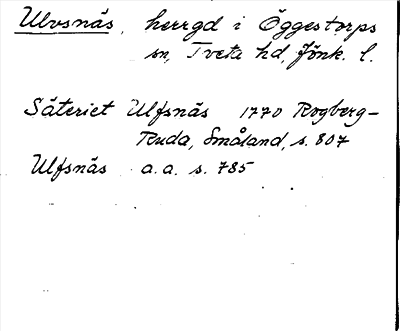 Ulvsnäs, herrgd i Öggestorps
sn, Tveta hd, Jönk. l.
Säteriet Ulfsnäs 1770 Rogberg-
Ruda, Småland, s. 807
Ulfsnäs a.a. s. 785